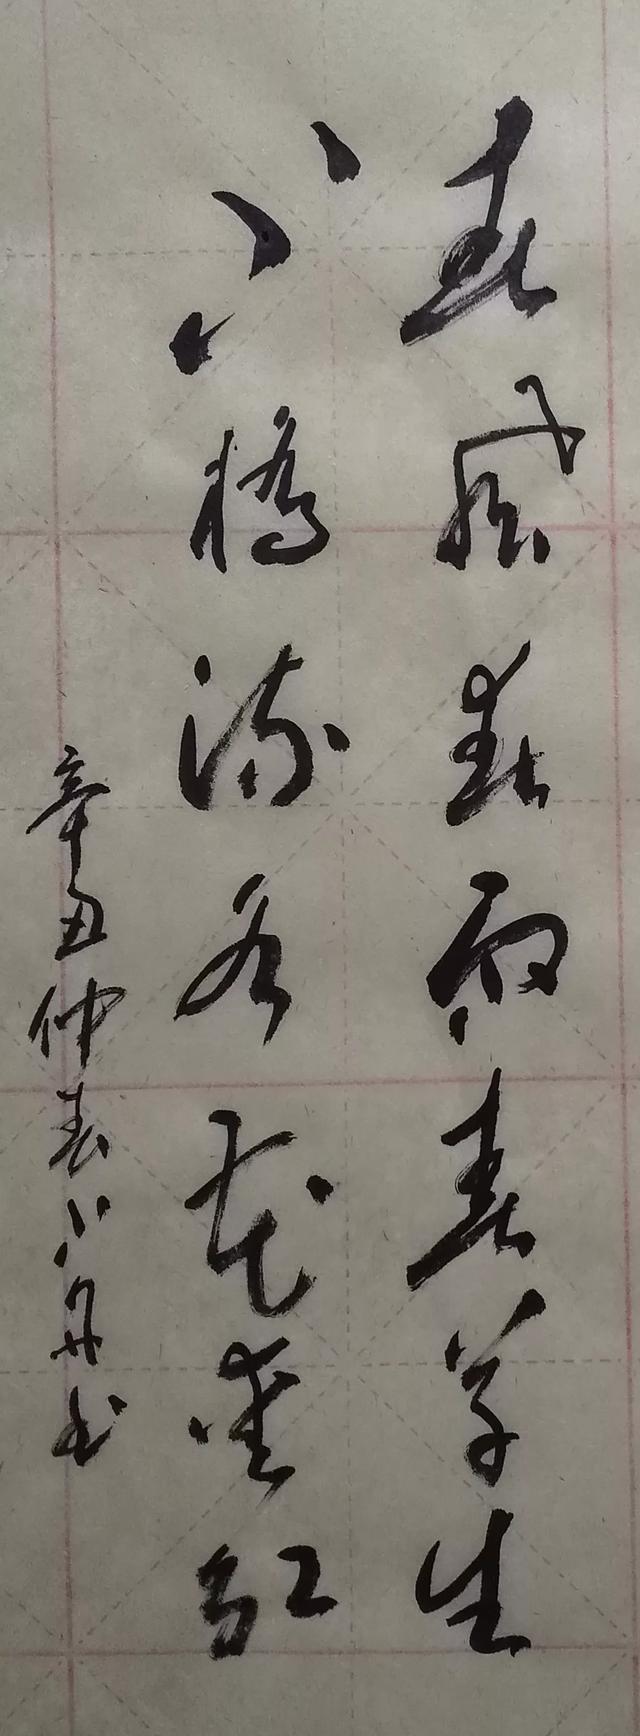 春风春雨春草生
小桥流水花垂红
辛丑仲春小舟书